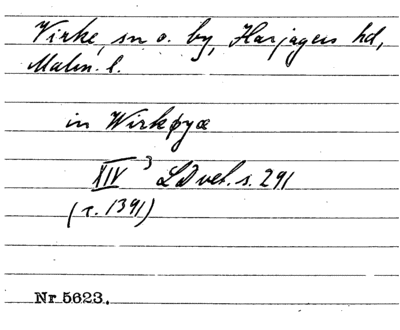 Virke, sn o. by, Harjagers hd,
Malm. l.
in Wirkøyæ
XIV³ LDvet. s. 291
(c. 1391)
Nr 5623.